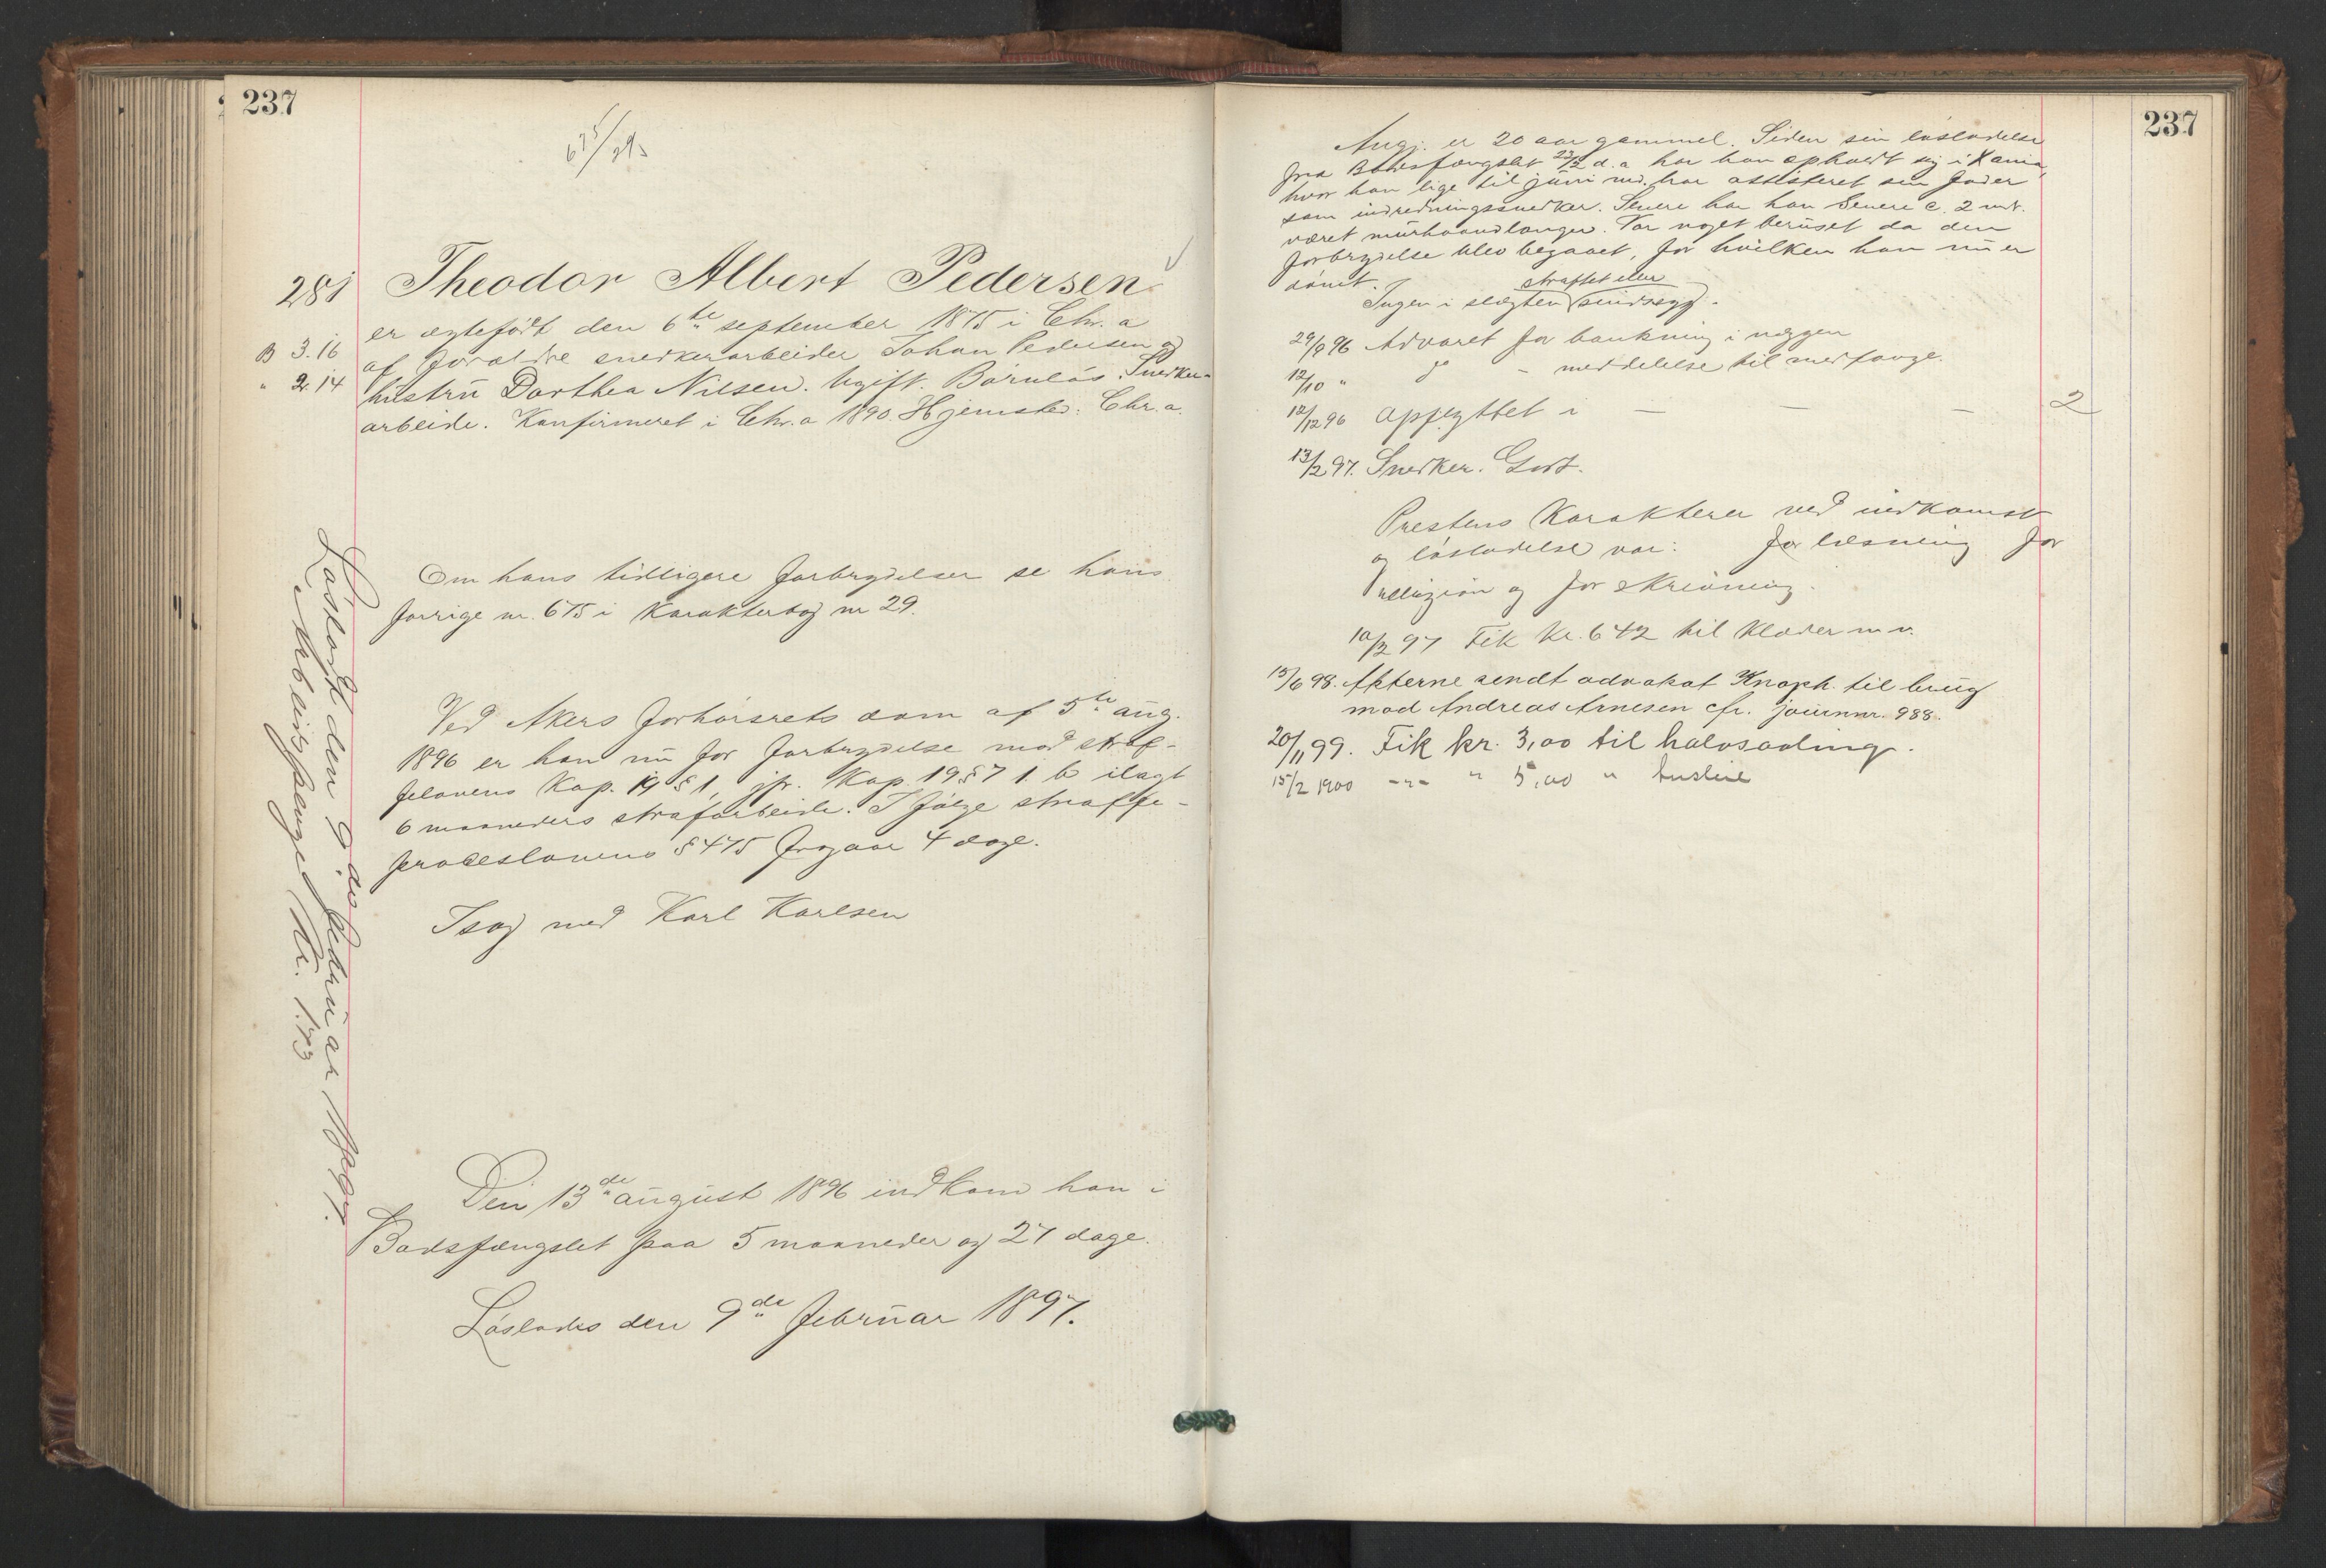 237
675/29
281 Theodor Albert Pedersen
er ægteføđt den 6te september 1875 i Chr.a
B 3.16 af forældre snedkerarbeider Johan Pedersen og
" 2.14 hustru Dorthea Nilsen. Ugift. Barnløs. Snedker-
arbeide. Konfirmeret i Chr.a 1890. Hjemsted: Chr.a.
Om hans tidligere forbrydelser se hans
forrige nr. 675 i Karakterbog nr 29.
Ved Akers forhørsrets dom af 5te aug.
1896 er han nu for forbrydelse mod straf-
felovens Kap. 19 § 1, jfr. Kap. 19 § 7 1. b ilagt
6 maaneders strafarbeide. Ifølge straffe-
proceslovens § 475 fragaar 4 dage.
I sag med Karl Karlsen
Den 13de august 1896 indkom han i
Bodsfængslet paa 5 maaneder og 27 dage.
Løslades den 9de februar 1897.
Løsladt den 9de februar 1897.
Arbeidspenge Kr. 1.73
237
Angj. er 20 aar gammel. Siden sin løsladelse
fra Bodsfængslet 23/2 d.a har han opholdt sig i Xania,
hvor han lige til juni md. har assisteret sin fader
som indredningssnedker. Senere har han senere c. 2 md.
været murhaandlanger. Var noget beruset da den
forbrydelse blev begaaet, for hvilken han nu er
dømt.
straffet eller
Ingen i slægten sindssyg.
29/9 96 Advaret for bankning i væggen
12/10 " " - meddelelse til medfange.
12/12 96 Opflyttet i — — — 2
13/2 97. Snedker. Godt.
Prestens Karakterer ved indkomst
og løsladelse var: for læsning for
religion og for skrivning.
10/2 97 Fik Kr. 6 42 til Klæder m v.
15/6 98. Akterne sendt advokat Knoph til brug
mod Andreas Arnesen cfr. journnr. 988.
20/11 99. Fik kr. 3,00 til halvsaaling.
15/2 1900 -"- " 5,00 " husleie